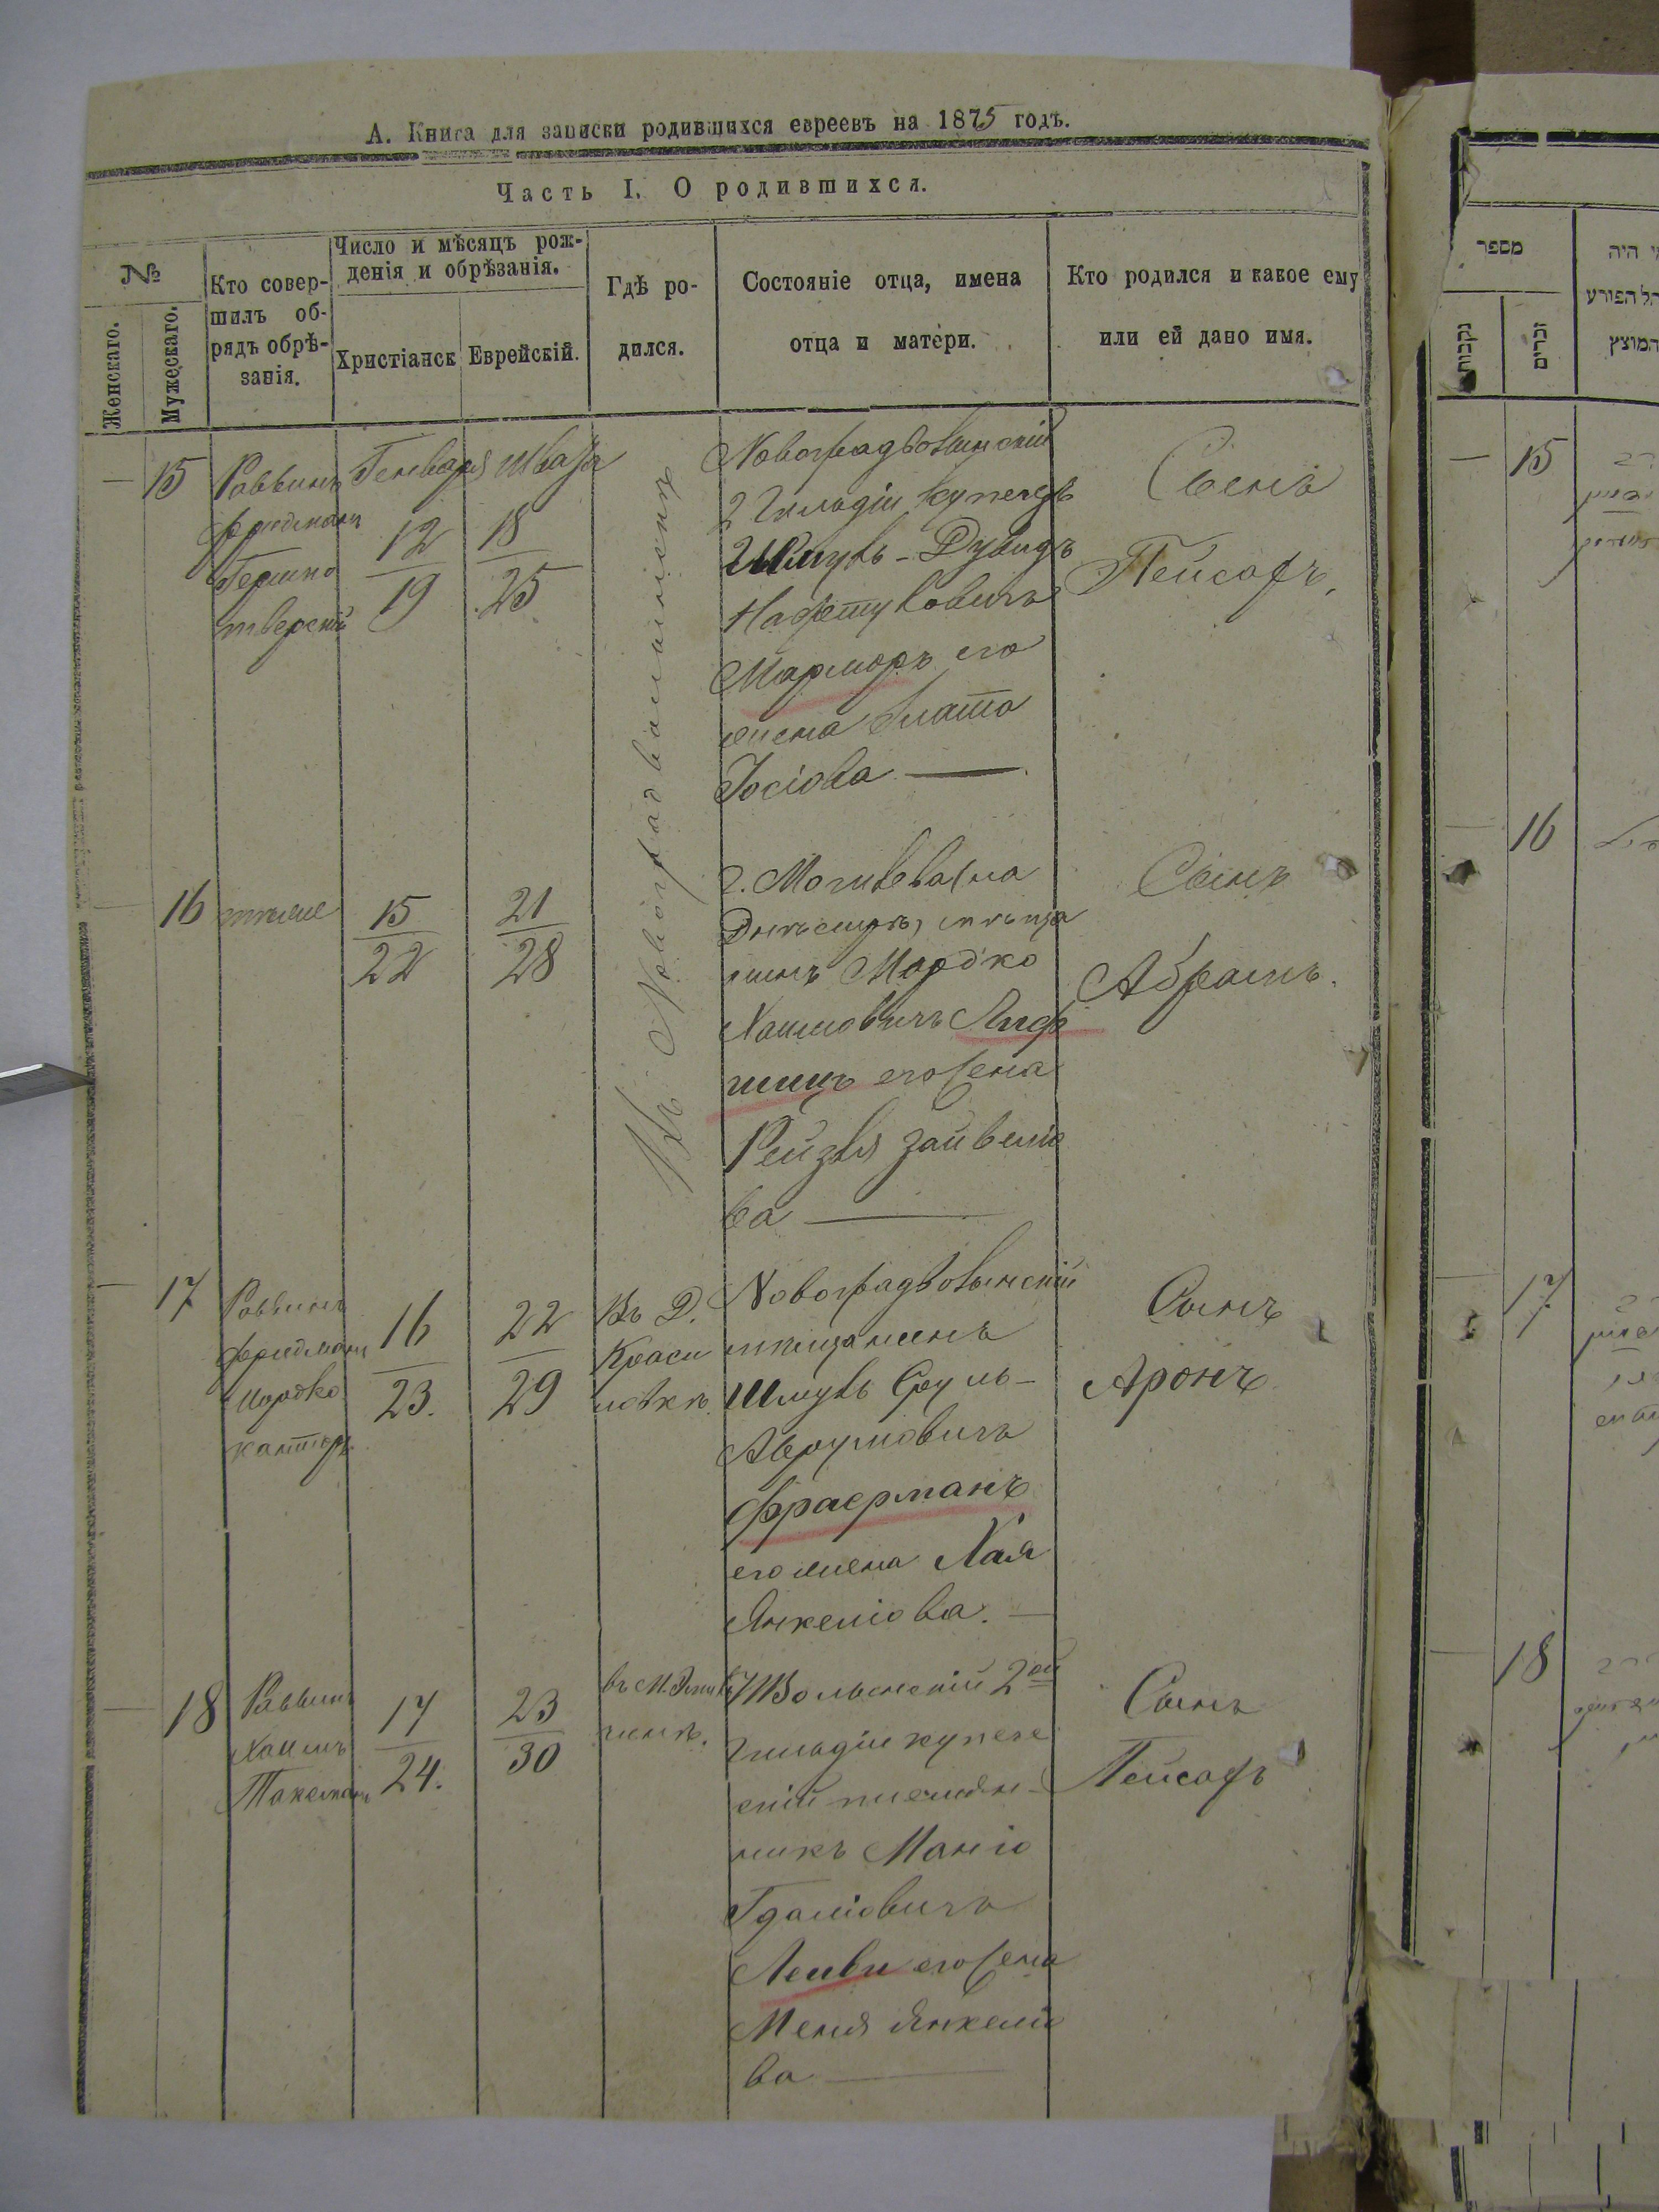 А. Книга для записки родившихся евреевъ на 1875 годъ.
Часть I. О родившихся.
№
Женскаго.
Мужескаго.
Кто совер-
шилъ об-
рядъ обрѣ-
занія.
Число и мѣсяцъ рож-
денія и обрѣзанія.
Христіанск
Еврейскій.
Гдѣ ро-
дился.
Состояніе отца, имена
отца и матери.
Кто родился и какое ему
или ей дано имя.
15
Раввинъ
Фридманъ
Гершко
тверскій
Генваря
12
19
Шватъ
18
25
Въ Новоградволынскѣ
Новоградволынскій
2 Гильдіи купецъ
Шмуль-Дувидъ
Нафтуловичъ
Марморъ его
жена Злата
Іосіова
Сынъ
Пейсахъ,
16
тѣже
15
22
21
28
г. Могилева на
Днѣстрѣ, мѣща
нинъ Мордко
Хаимовичъ Лиф
шицъ его жена
Рейзля Зайвеліо
ва
Сынъ
Абрамъ.
17
Раввинъ
Фридманъ
Мордко
канторъ
16
23.
22
29
Въ Д.
Краси
ловкѣ
Новоградволынскій
мѣщанинъ
Шмуль Сруль-
Аврумовичъ
Фраерманъ
его жена Хая
Янкеліова.
Сынъ
Аронъ
18
Раввинъ
Хаимъ
Такеманъ
17
24.
23
30
въ М.
чинѣ.
Звольенскій 2ой
гильдіи купече
скій племян-
никъ Маніо
Гдаліовичъ
Лейви его жена
Меня Янкеліо
ва
Сынъ
Пейсахъ
מספר
נקבות
זכרים
מי היה
המוצץ
15
16
17
18